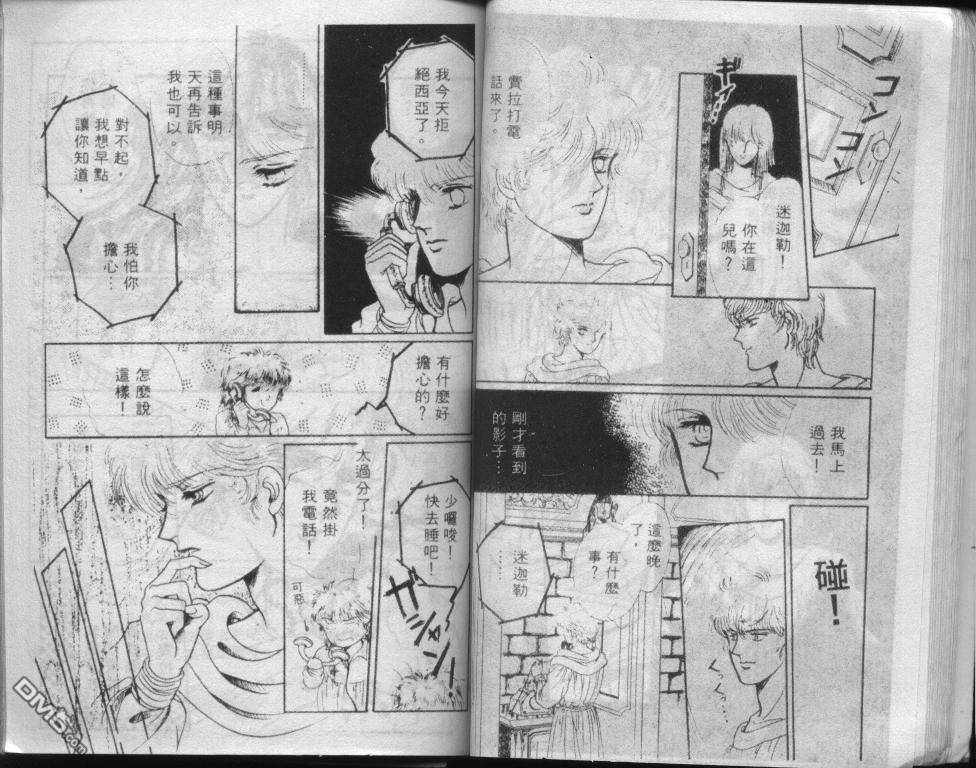 コンコン
ギィ
迷迦勒！
你在這
兒嗎？
費拉打電
話來了。
我馬上
過去！
剛才看到
的影子…
碰！
這麼晚
了，
有什麼
事？
迷迦勒
……
我今天拒
絕西亞了。
這種事明
天再告訴
我也可以。
對不起，
我想早點
讓你知道，
我怕你
擔心…
有什麼好
擔心的？
怎麼說
這樣！
少囉唆！
快去睡吧！
ガシャン
太過分了！
竟然掛
我電話！
可惡
DM5.com